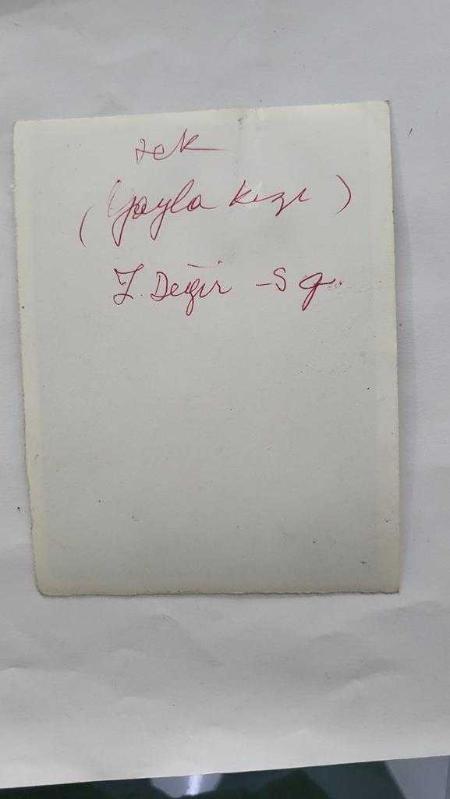 (Yayla Kızı)
Z. Değir - S g.